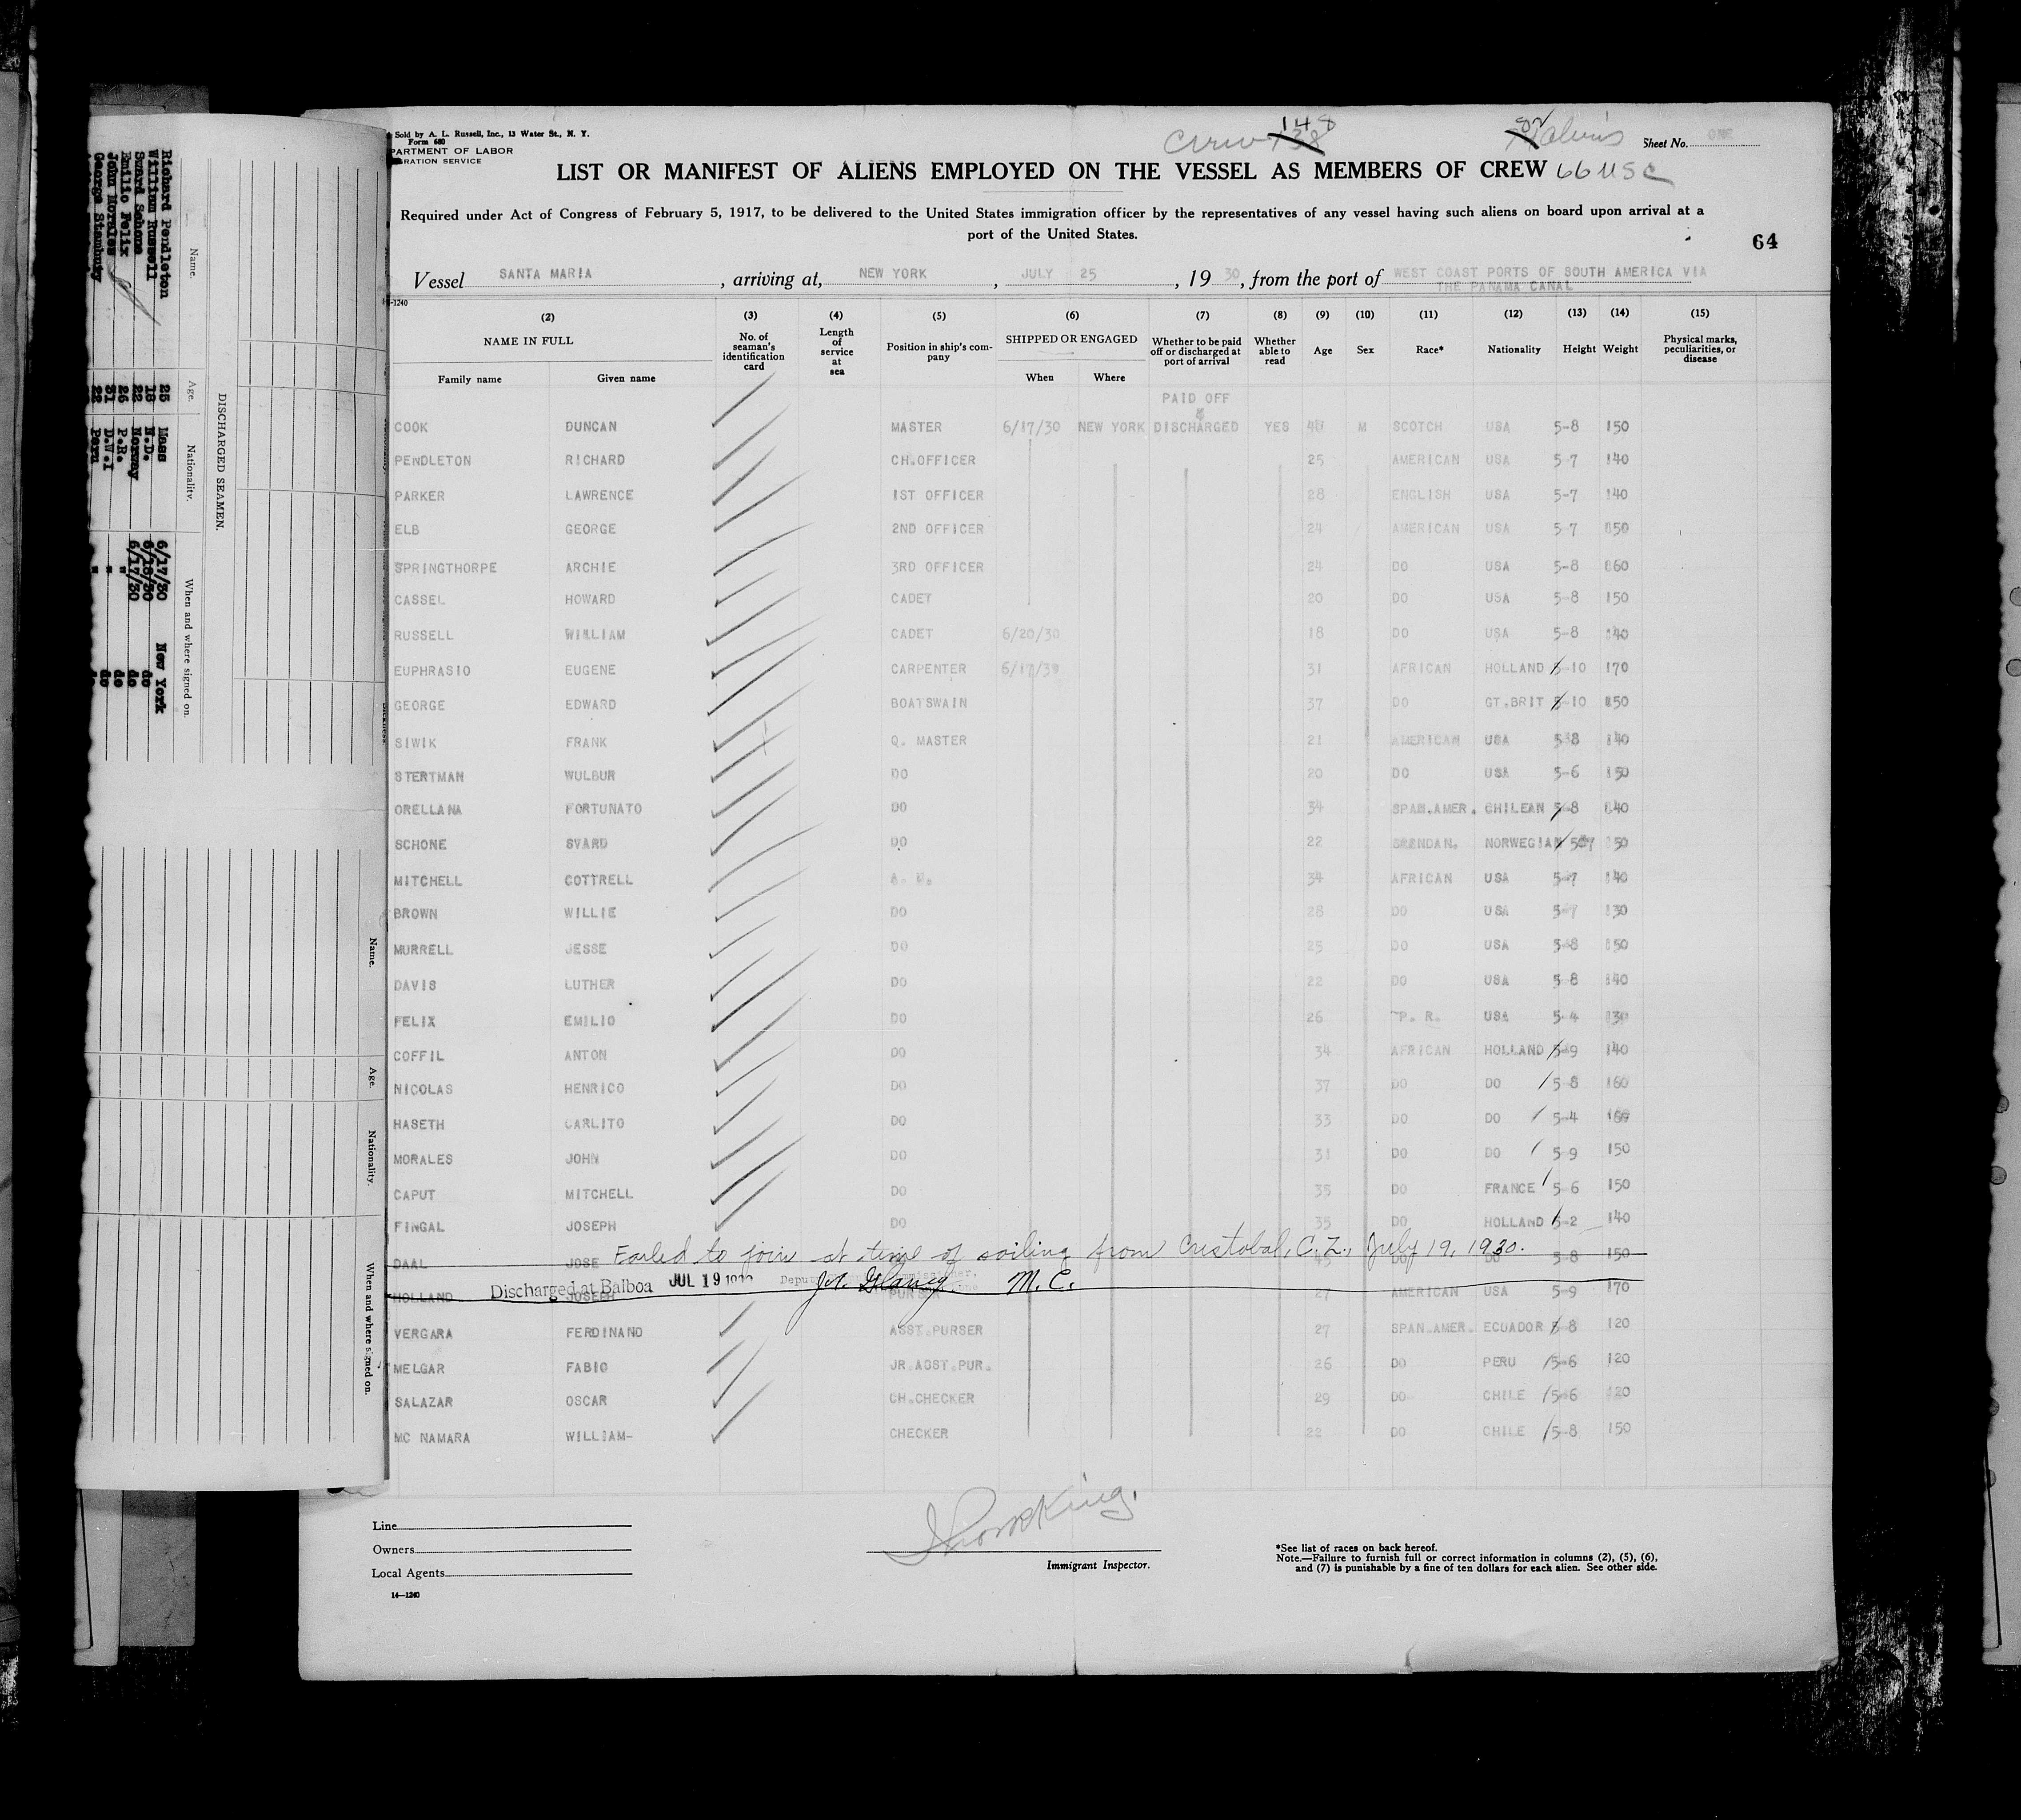 Sold by A. L. Russell, Inc., 13 Water St., N. Y.
Form 680
PARTMENT OF LABOR
RATION SERVICE
Crew 138 148
82 aliens
Sheet No. ONE
LIST OR MANIFEST OF ALIENS EMPLOYED ON THE VESSEL AS MEMBERS OF CREW 66 USC
Required under Act of Congress of February 5, 1917, to be delivered to the United States immigration officer by the representatives of any vessel having such aliens on board upon arrival at a
port of the United States.
64
Vessel SANTA MARIA, arriving at, NEW YORK, JULY 25, 1930, from the port of WEST COAST PORTS OF SOUTH AMERICA VIA
THE PANAMA CANAL
-1240
(2) (3) (4) (5) (6) (7) (8) (9) (10) (11) (12) (13) (14) (15)
NAME IN FULL No. of seaman's identification card Length of service at sea Position in ship's company SHIPPED OR ENGAGED Whether to be paid off or discharged at port of arrival Whether able to read Age Sex Race* Nationality Height Weight Physical marks, peculiarities, or disease
Family name Given name When Where
PAID OFF
&
COOK DUNCAN MASTER 6/17/30 NEW YORK DISCHARGED YES M SCOTCH USA 5-8 150
PENDLETON RICHARD CH.OFFICER 25 AMERICAN USA 5-7 140
PARKER LAWRENCE 1ST OFFICER 28 ENGLISH USA 5-7 140
ELB GEORGE 2ND OFFICER 24 AMERICAN USA 5-7 150
SPRINGTHORPE ARCHIE 3RD OFFICER 24 DO USA 5-8 160
CASSEL HOWARD CADET 20 DO USA 5-8 150
RUSSELL WILLIAM CADET 6/20/30 18 DO USA 5-8 140
EUPHRASIO EUGENE CARPENTER 6/17/30 31 AFRICAN HOLLAND 5-10 170
GEORGE EDWARD BOATSWAIN 37 DO GT.BRIT 5-10 150
SIWIK FRANK Q. MASTER 21 AMERICAN USA 5-8 140
STERTMAN WULBUR DO 20 DO USA 5-6 150
ORELLANA FORTUNATO DO 34 SPAN.AMER. CHILEAN 5-8 140
SCHONE SVARD DO 22 SCENDAN. NORWEGIAN 5-7 150
MITCHELL COTTRELL 34 AFRICAN USA 5-7 140
BROWN WILLIE DO 28 DO USA 5-7 130
MURRELL JESSE DO 25 DO USA 5-8 150
DAVIS LUTHER DO 22 DO USA 5-8 140
FELIX EMILIO DO 26 P. R. USA 5-4 130
COFFIL ANTON DO 34 AFRICAN HOLLAND 5-9 140
NICOLAS HENRICO DO 37 DO DO 5-8 160
HASETH CARLITO DO 33 DO DO 5-4
MORALES JOHN DO 31 DO DO 5-9 150
CAPUT MITCHELL DO 35 DO FRANCE 5-6 150
FINGAL JOSEPH DO 35 DO HOLLAND 5-2 140
Failed to join at time of sailing from Cristobal, C.Z., July 19, 1930.
DAAL JOSE 45 DO DO 5-8 150
Discharged at Balboa JUL 19 1930 M.C.
HOLLAND JOSEPH PURSER 27 AMERICAN USA 5-9 170
VERGARA FERDINAND ASST.PURSER 27 SPAN.AMER. ECUADOR 5-8 120
MELGAR FABIO JR.ASST.PUR. 26 DO PERU 5-6 120
SALAZAR OSCAR CH.CHECKER 29 DO CHILE 5-6 120
MC NAMARA WILLIAM- CHECKER 22 DO CHILE 5-8 150
Line
Owners
Local Agents
14—1240
Immigrant Inspector.
*See list of races on back hereof.
Note.—Failure to furnish full or correct information in columns (2), (5), (6),
and (7) is punishable by a fine of ten dollars for each alien. See other side.
DISCHARGED SEAMEN.
Name. Age. Nationality. When and where signed on.
Richard Pendleton 25 Mass 6/17/30 New York
William Russell 18 N.D. 6/18/30 do
Svard Schone 22 Norway 6/17/30 do
Emilio Felix 26 P.R. " do
John Morales 31 D.W.I " do
George Stanbury 22 Peru " do
Name. Age. Nationality. When and where signed on.